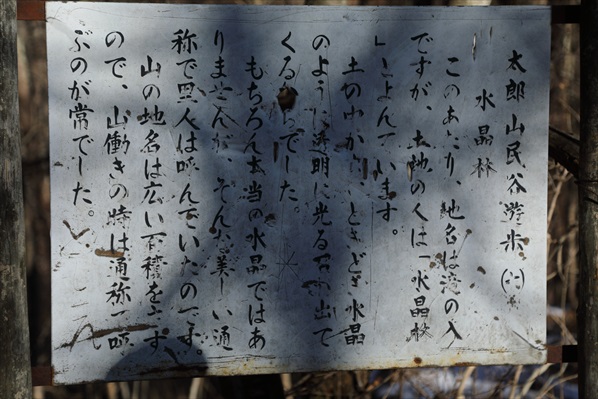 太郎山民谷遊歩(六)
水晶林
このあたり、地名は湯の入
ですが、土地の人は「水晶林
」とよんでいます。
土の中から、ときどき水晶
のように透明に光る石が出て
くるからでした。
もちろん本当の水晶ではあ
りませんが、そんな美しい通
称で里人は呼んでいたのです。
山の地名は広い面積を示す
ので、山働きの時は通称で呼
ぶのが常でした。